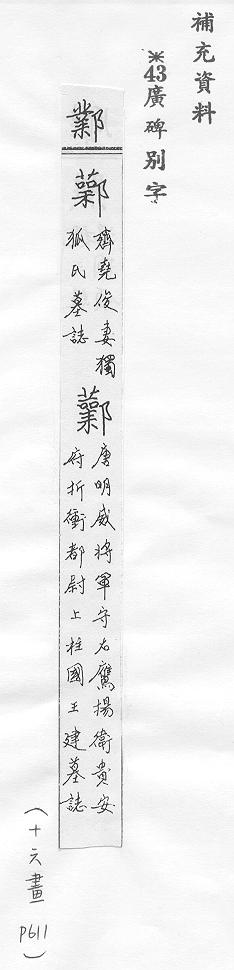 補充資料
※43廣碑別字
鄴
齊堯俊妻獨
狐氏墓誌
唐明威將軍守右鷹揚衛貴安
府折衝都尉上柱國王建墓誌
(十六畫 P611)